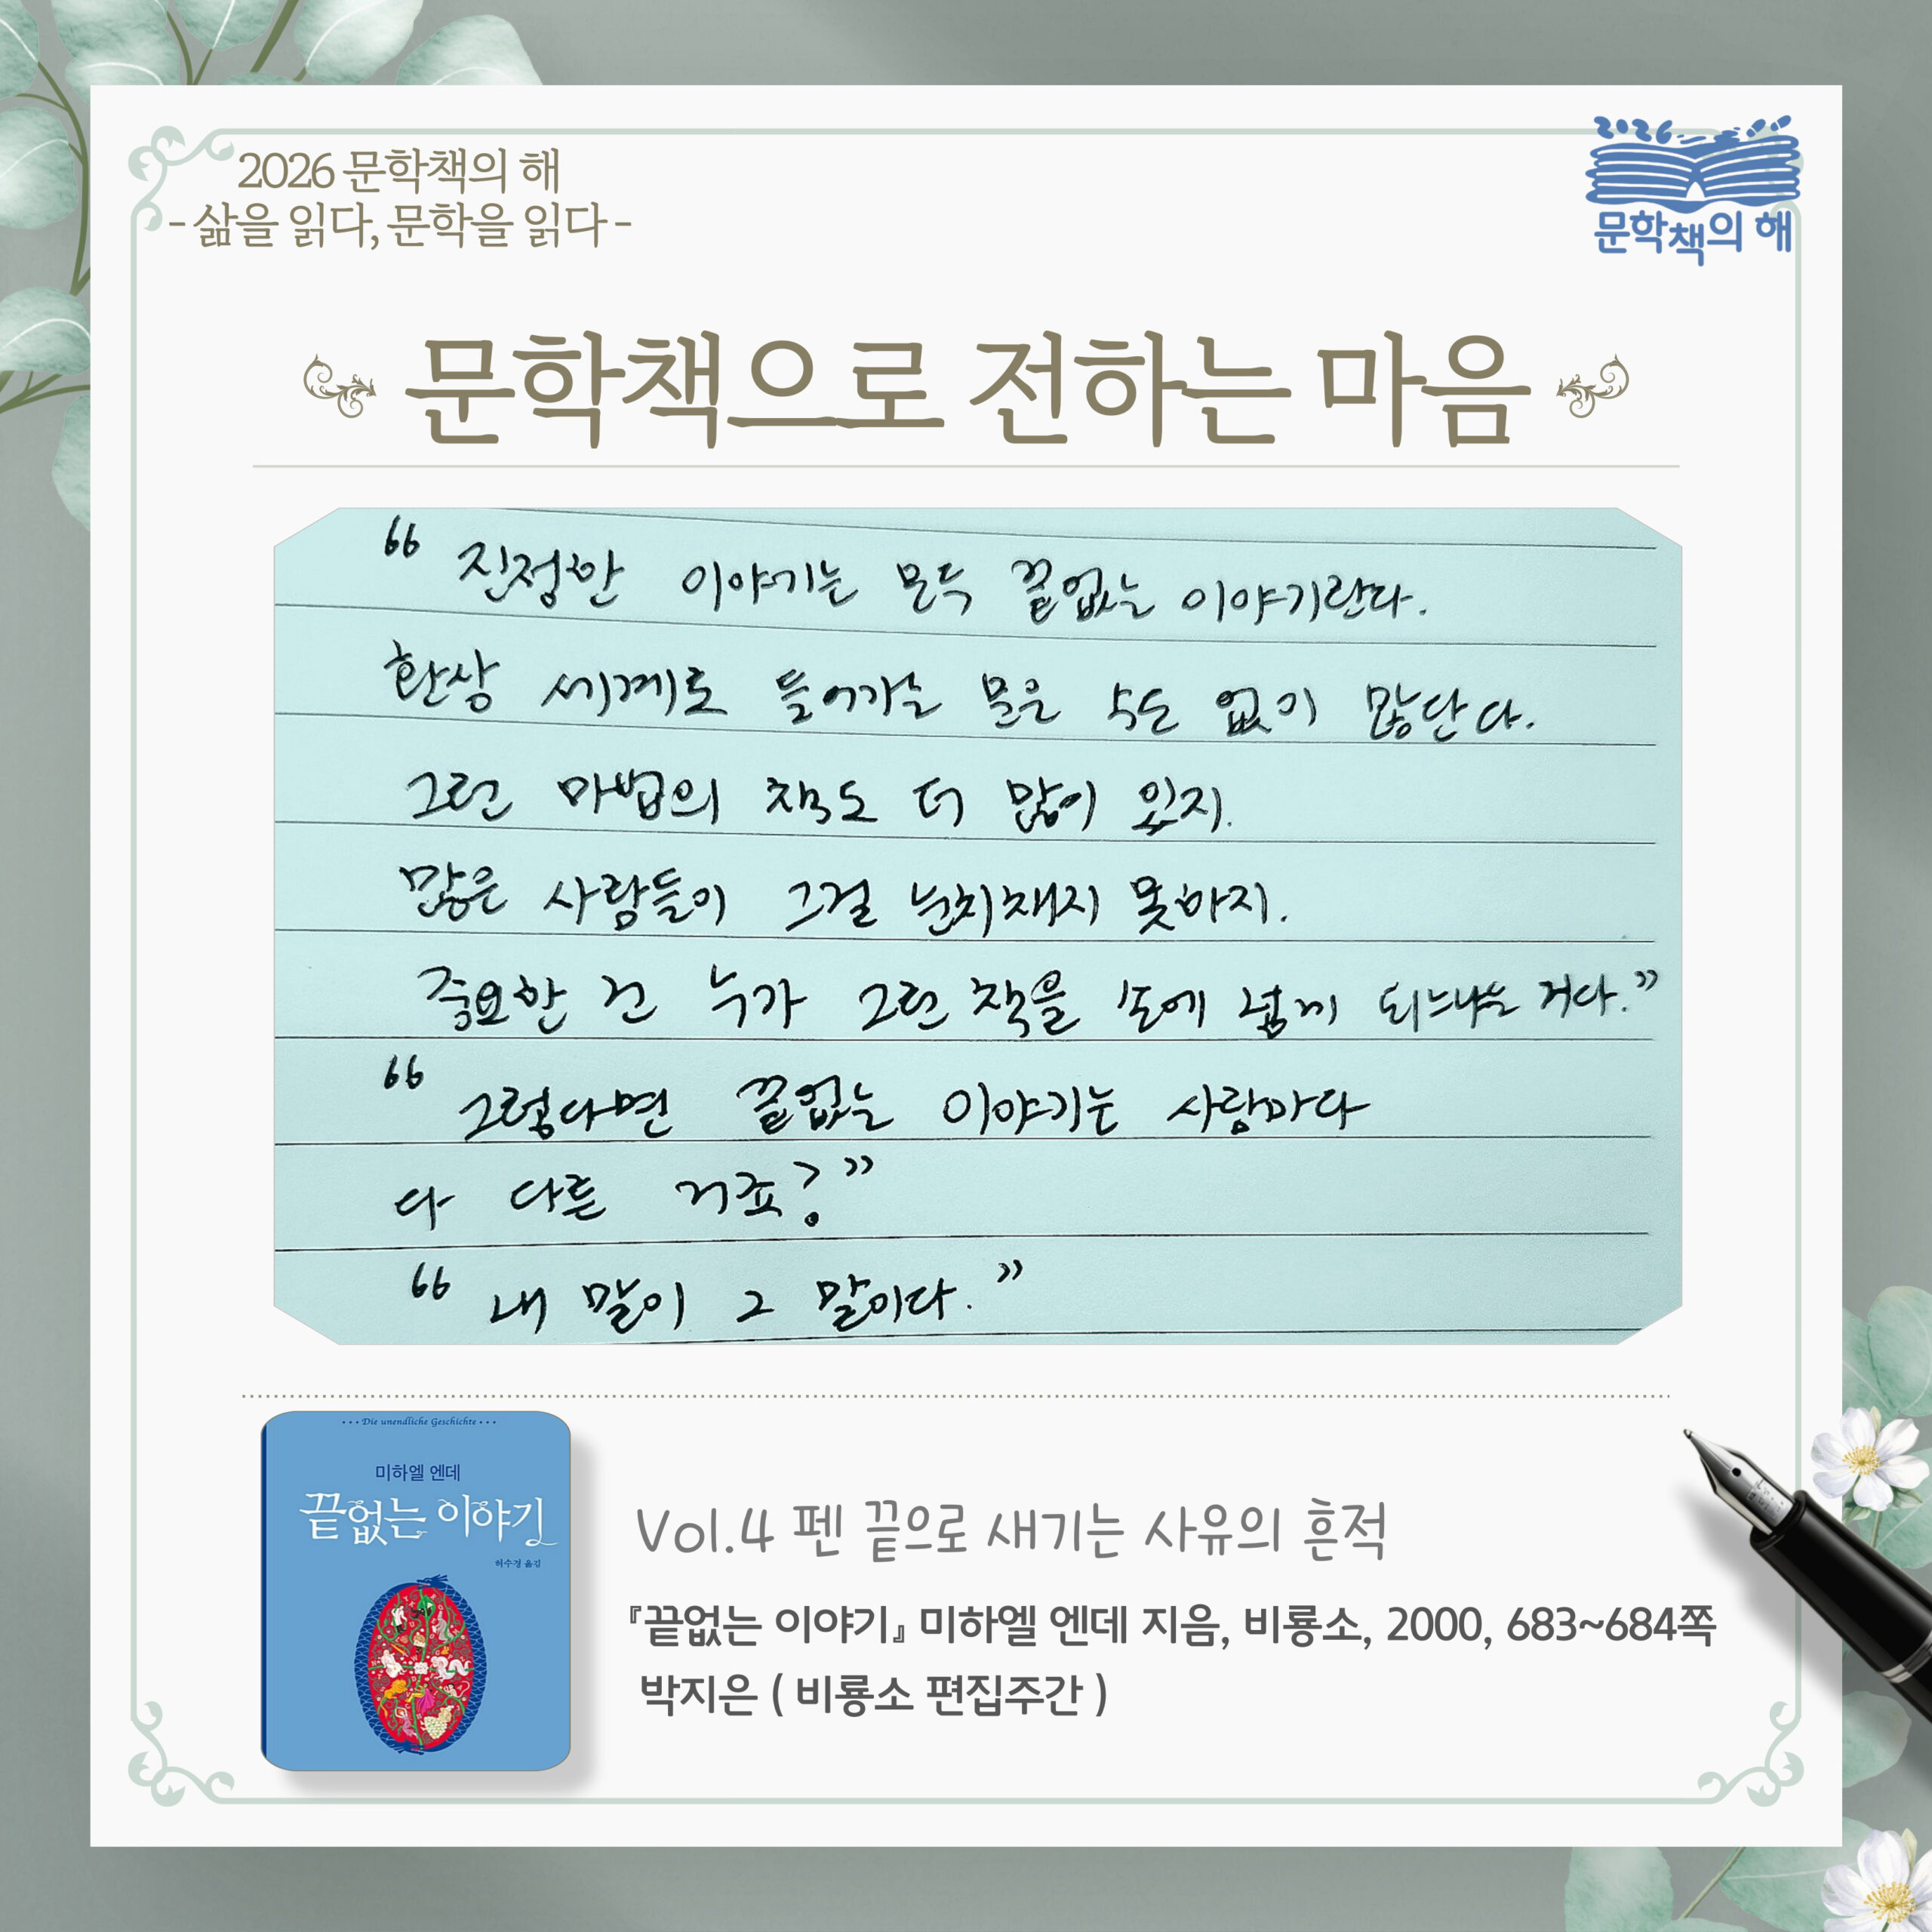 2026 문학책의 해
- 삶을 읽다, 문학을 읽다 -
2026
문학책의 해
문학책으로 전하는 마음
“ 진정한 이야기는 모두 끝없는 이야기란다.
환상 세계로 들어가는 문은 수도 없이 많단다.
그런 마법의 책도 더 많이 있지.
많은 사람들이 그걸 눈치채지 못하지.
중요한 건 누가 그런 책을 손에 넣게 되느냐는 거다.”
“ 그렇다면 끝없는 이야기는 사람마다
다 다른 거죠?”
“ 내 말이 그 말이다.”
Die unendliche Geschichte
미하엘 엔데
끝없는 이야기
허수경 옮김
Vol.4 펜 끝으로 새기는 사유의 흔적
『끝없는 이야기』 미하엘 엔데 지음, 비룡소, 2000, 683~684쪽
박지은 ( 비룡소 편집주간 )